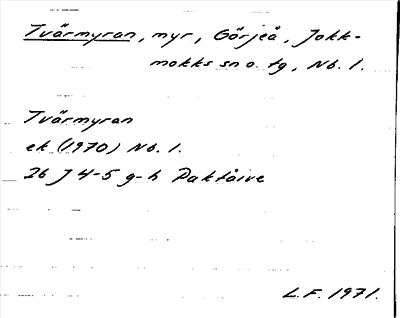 Tvärmyran, myr, Görjeå, Jokk-
mokks sn o. tg, Nb. l.
Tvärmyran
ek (1970) Nb. l.
26 J 4-5 g-h Paktåive
L.F. 1971.